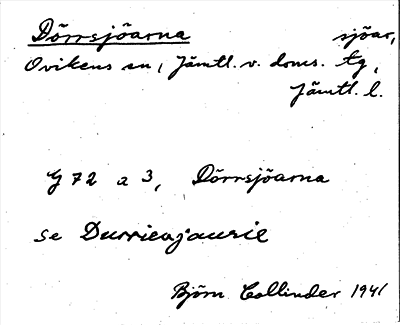 Dörrsjöarna sjöar,
Ovikens sn, Jämtl. v. doms. tg,
Jämtl. l.
G 72 a 3, Dörrsjöarna
se Durrienjaurie
Björn Collinder 1941